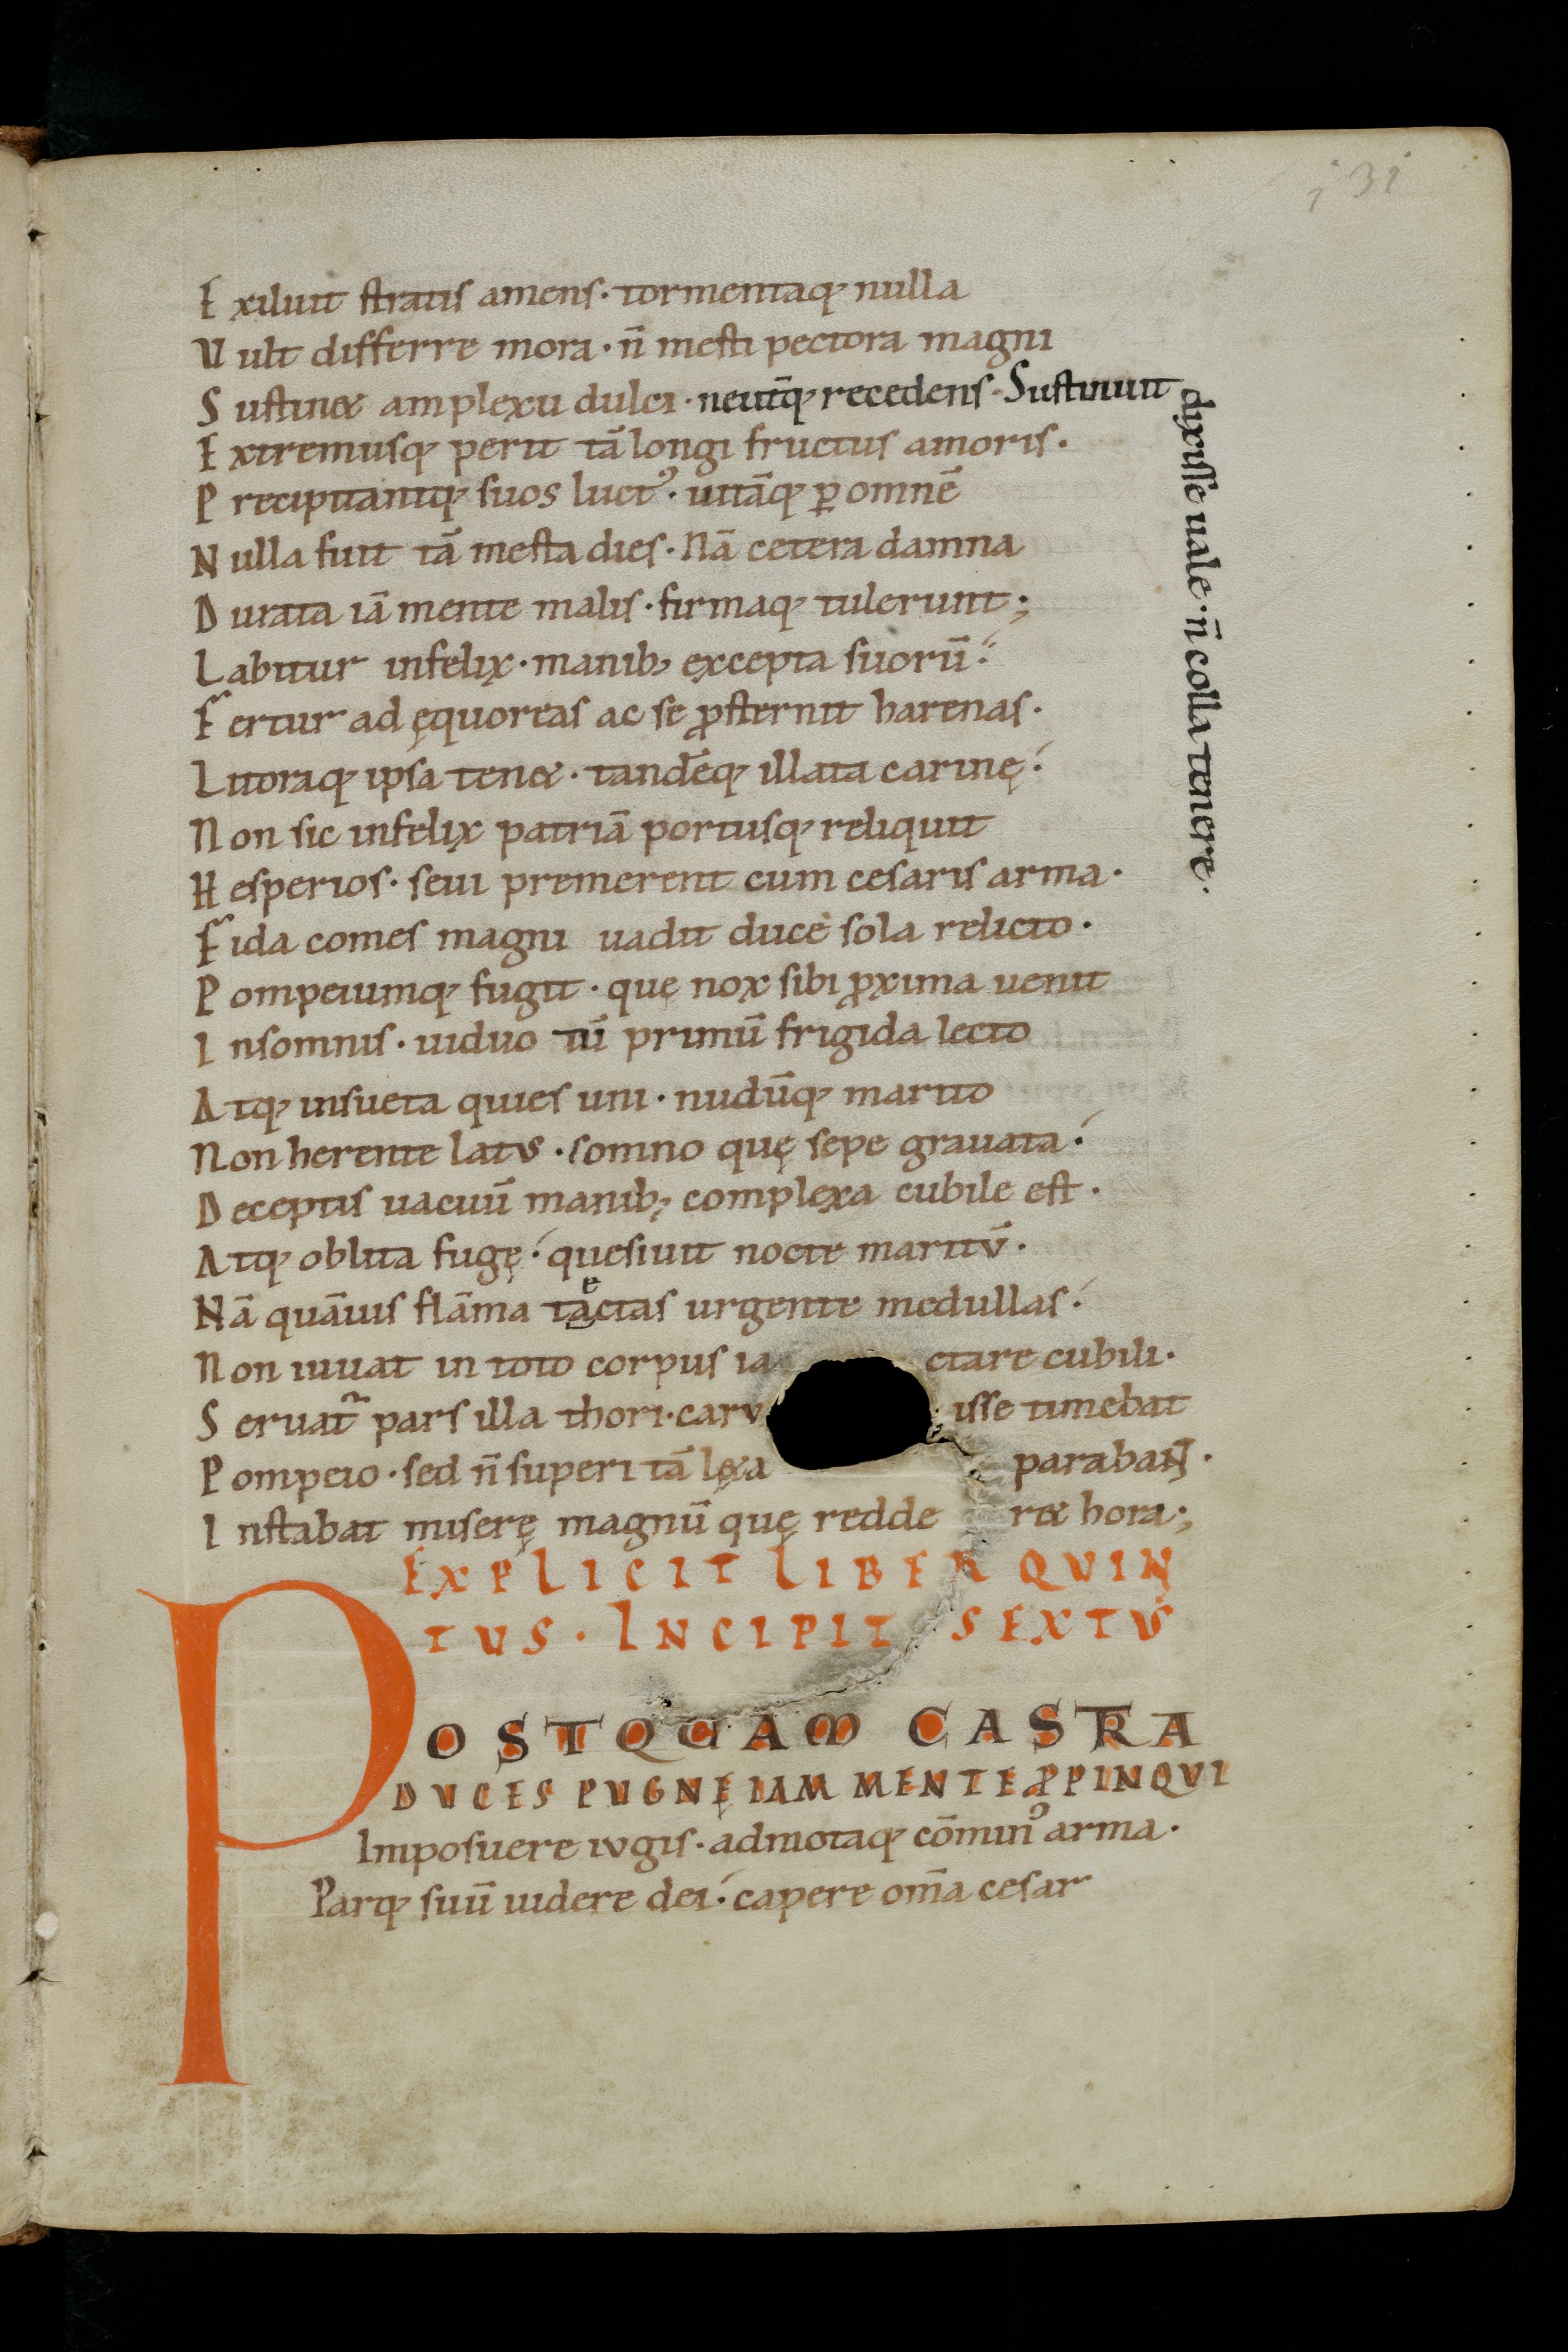 131
Exiluit stratis amens· tormentaq; nulla
Uult differre mora· n̄ mesti pectora magni
Sustin& amplexu dulci· neutrq̄; recedens· Sustinuit
dixisse uale· n̄ colla tenere·
Extremusq; perit tā longi fructus amoris·
Precipitantq; suos luctꝰ· utrāq; ꝑ omnē
Nulla fuit tā mesta dies· Nā cetera damna
Durata iā mente malis· firmaq; tulerunt;
Labitur infelix· manib; excepta suorū·
Fertur ad ęquoreas ac se ꝓsternit harenas·
Litoraq; ipsa ten&· tandēq; illata carinę·
Non sic infelix patriā portusq; reliquit
Hesperios· seui premerent cum cesaris arma·
Fida comes magni uadit duce sola relicto·
Pompeiumq; fugit· quę nox sibi ꝓxima uenit
Insomnis· uiduo tū primū frigida lecto
Atq; insueta quies uni· nudūq; marito
Non herente latus· somno quę sepe grauata·
Deceptis uacuū manib; complexa cubile est·
Atq; oblita fugę· quesiuit nocte maritū·
Nā quāuis flāma tactas urgente medullas·
e
Non iuuat in toto corpus iactare cubili·
Seruat᷑ pars illa thori· caruisse timebat
Pompeio· sed n̄ superi tā lęxa parabaNT·
Instabat miserę magnū quę redder& hora;
EXPLICIT LIBER QVIN
TUS· INCIPIT SEXTVS
POSTQUAM CASTRA
DUCES PUGNĘ IAM MENTE ꝒPINQVI
Imposuere iugis· admotaq; cōminꝰ arma·
Parq; suū uidere dei· capere om̄a cesar